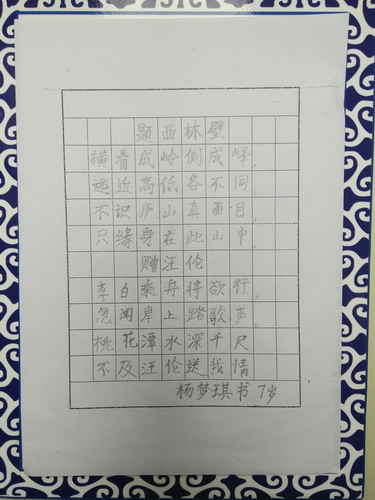 题西林壁
横看成岭侧成峰，
远近高低各不同。
不识庐山真面目，
只缘身在此山中。
赠汪伦
李白乘舟将欲行，
忽闻岸上踏歌声。
桃花潭水深千尺
不及汪伦送我情
杨梦琪书 7岁